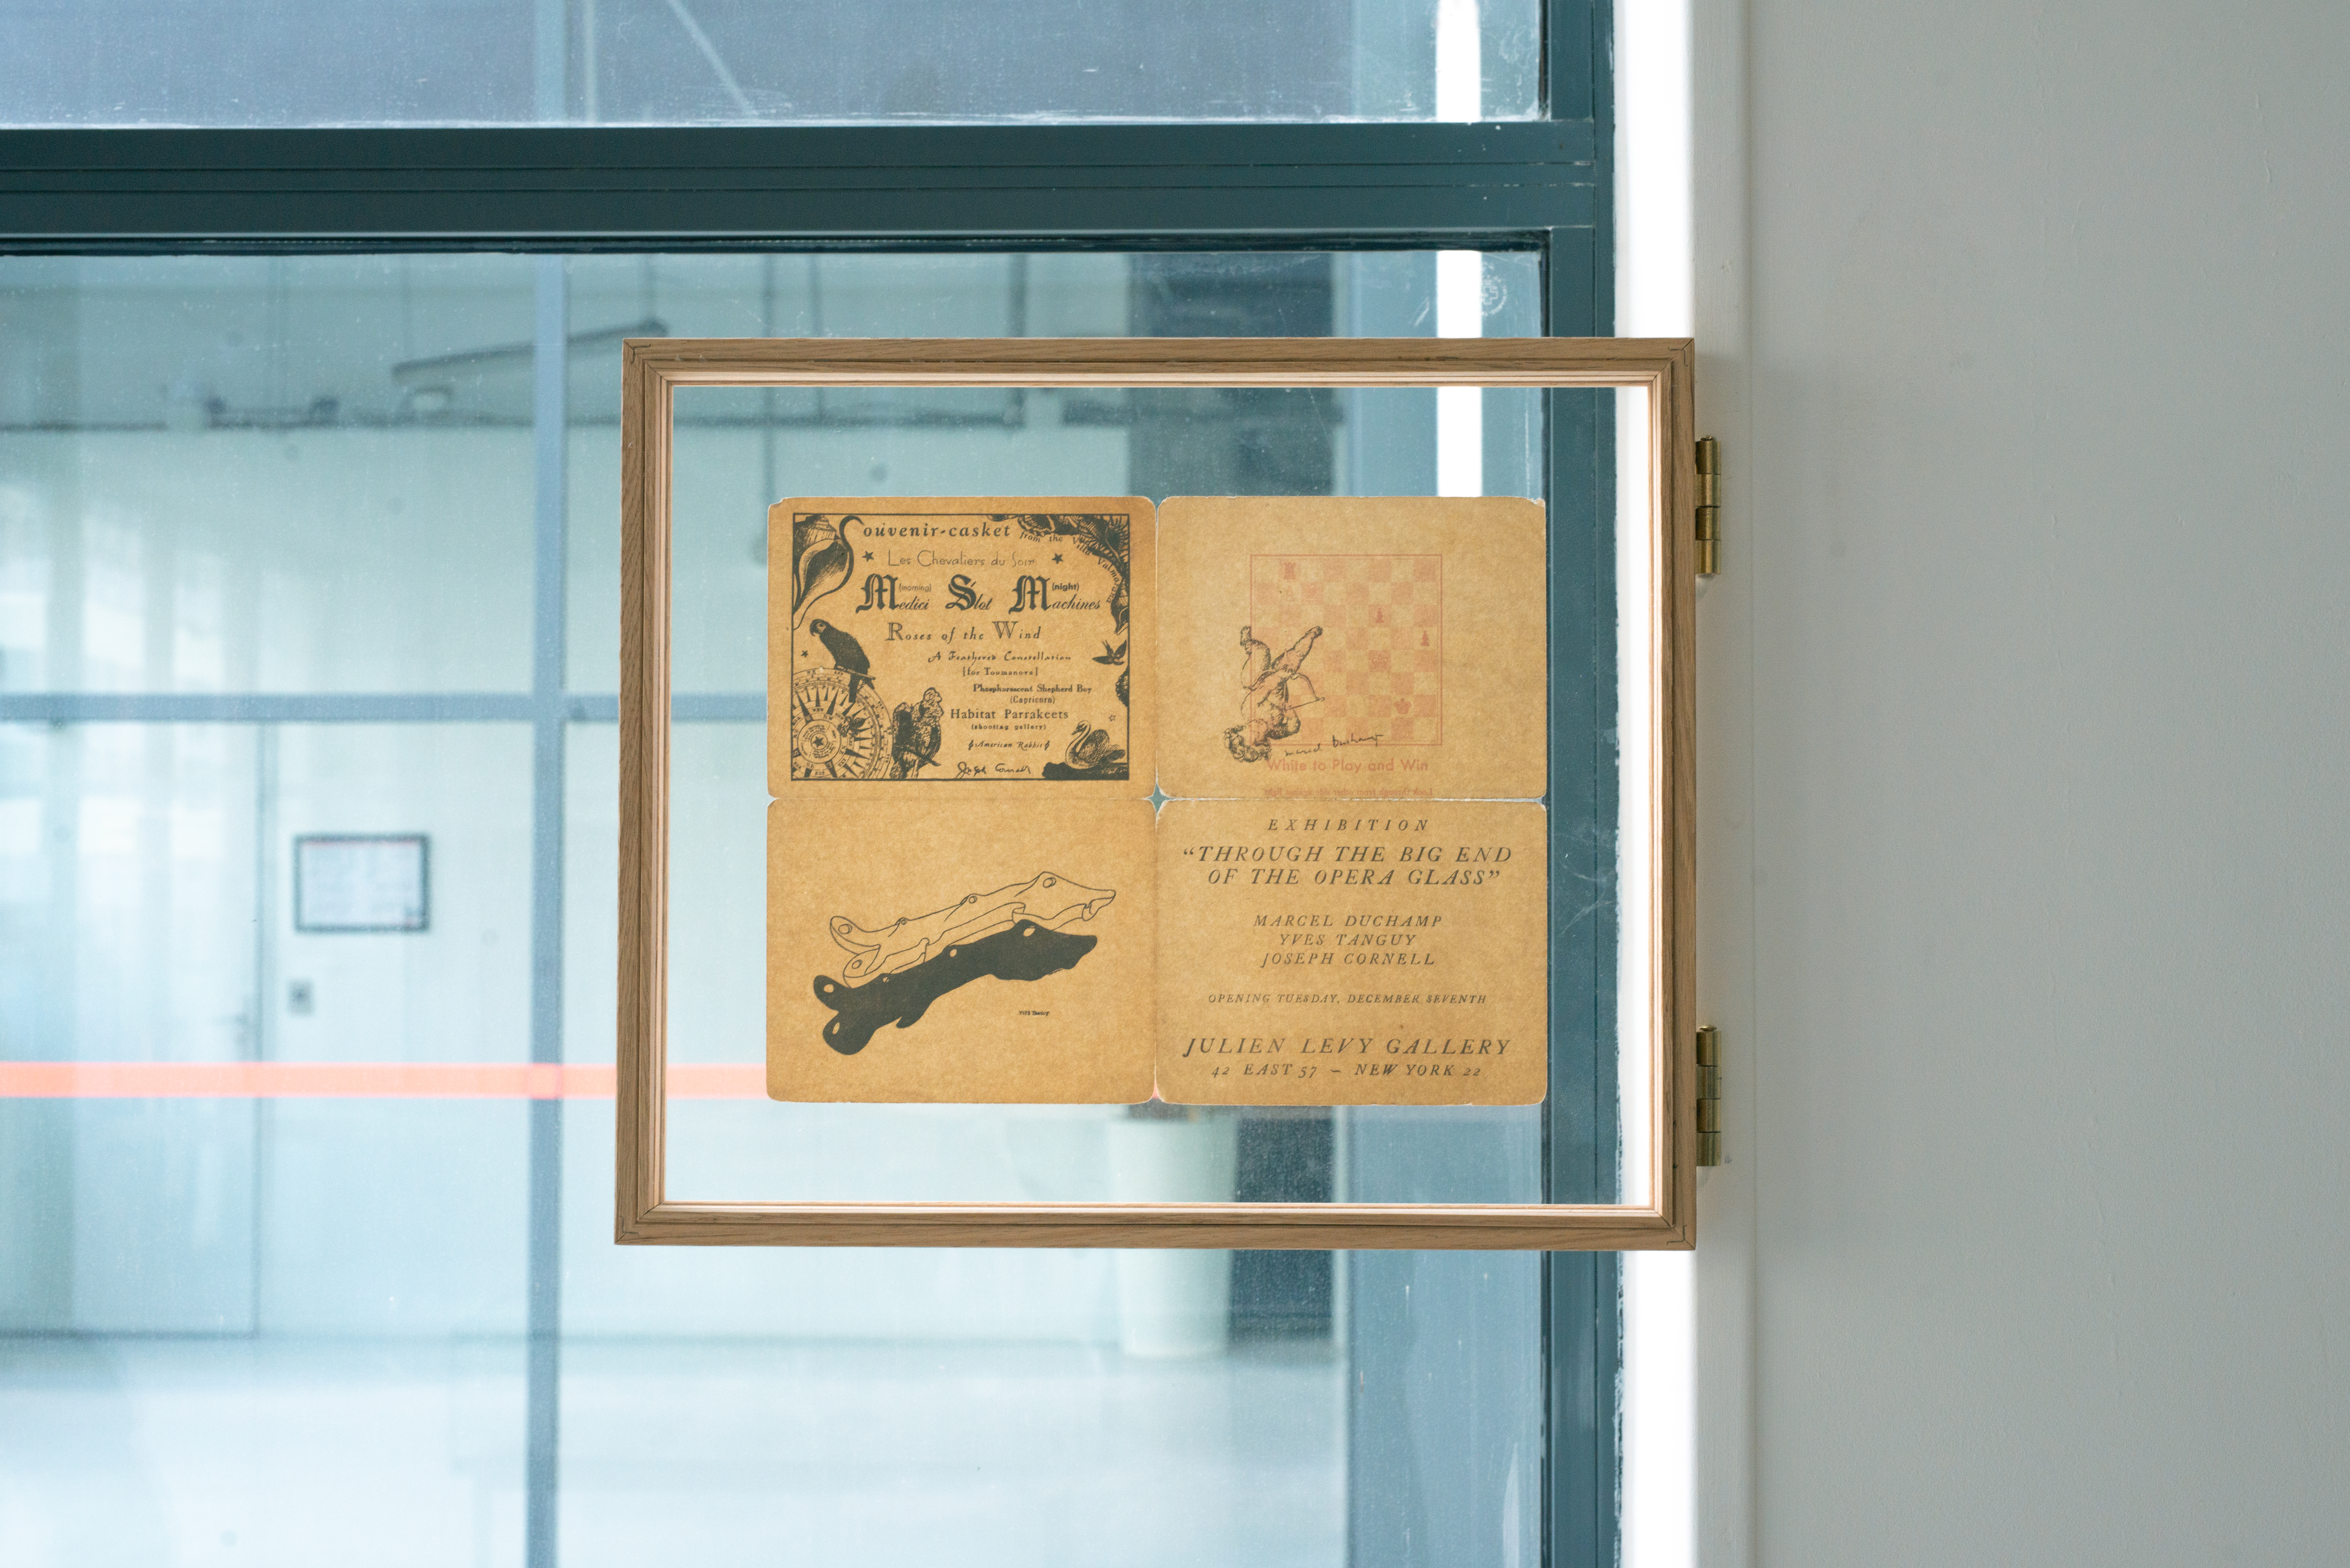 Souvenir-casket from the Villa Valmarana
★ Les Chevaliers du Soir ★
(morning) (night)
Medici Slot Machines
Roses of the Wind
A Feathered Constellation
[for Toumanova]
Phosphorescent Shepherd Boy
(Capricorn)
Habitat Parrakeets
(shooting gallery)
American Rabbit
Joseph Cornell
marcel Duchamp
White to Play and Win
Look through from other side against light
EXHIBITION
“THROUGH THE BIG END
OF THE OPERA GLASS”
MARCEL DUCHAMP
YVES TANGUY
JOSEPH CORNELL
OPENING TUESDAY, DECEMBER SEVENTH
JULIEN LEVY GALLERY
42 EAST 57 – NEW YORK 22